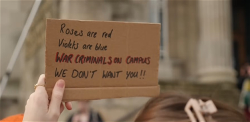 Roses are red
Violets are blue
WAR CRIMINALS ON CAMPUS
WE DON'T WANT YOU!!